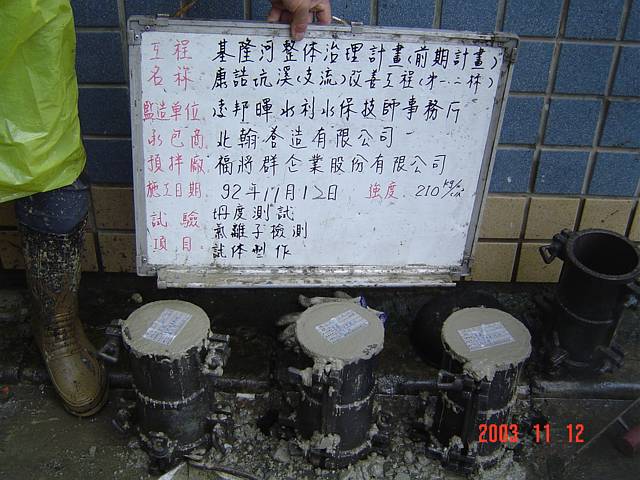 工程名称 基隆河整体治理計畫(前期計畫)
康誥坑溪(支流)改善工程(才一.二林)
監造單位 志邦暉水利水保技師事務斤
承包商 北翰营造有限公司
預拌廠 福將群企業股份有限公司
施工日期 92年11月12日 強度 210 kg/cm²
試驗項目 坍度測試
氯離子檢測
試体製作
2003 11 12